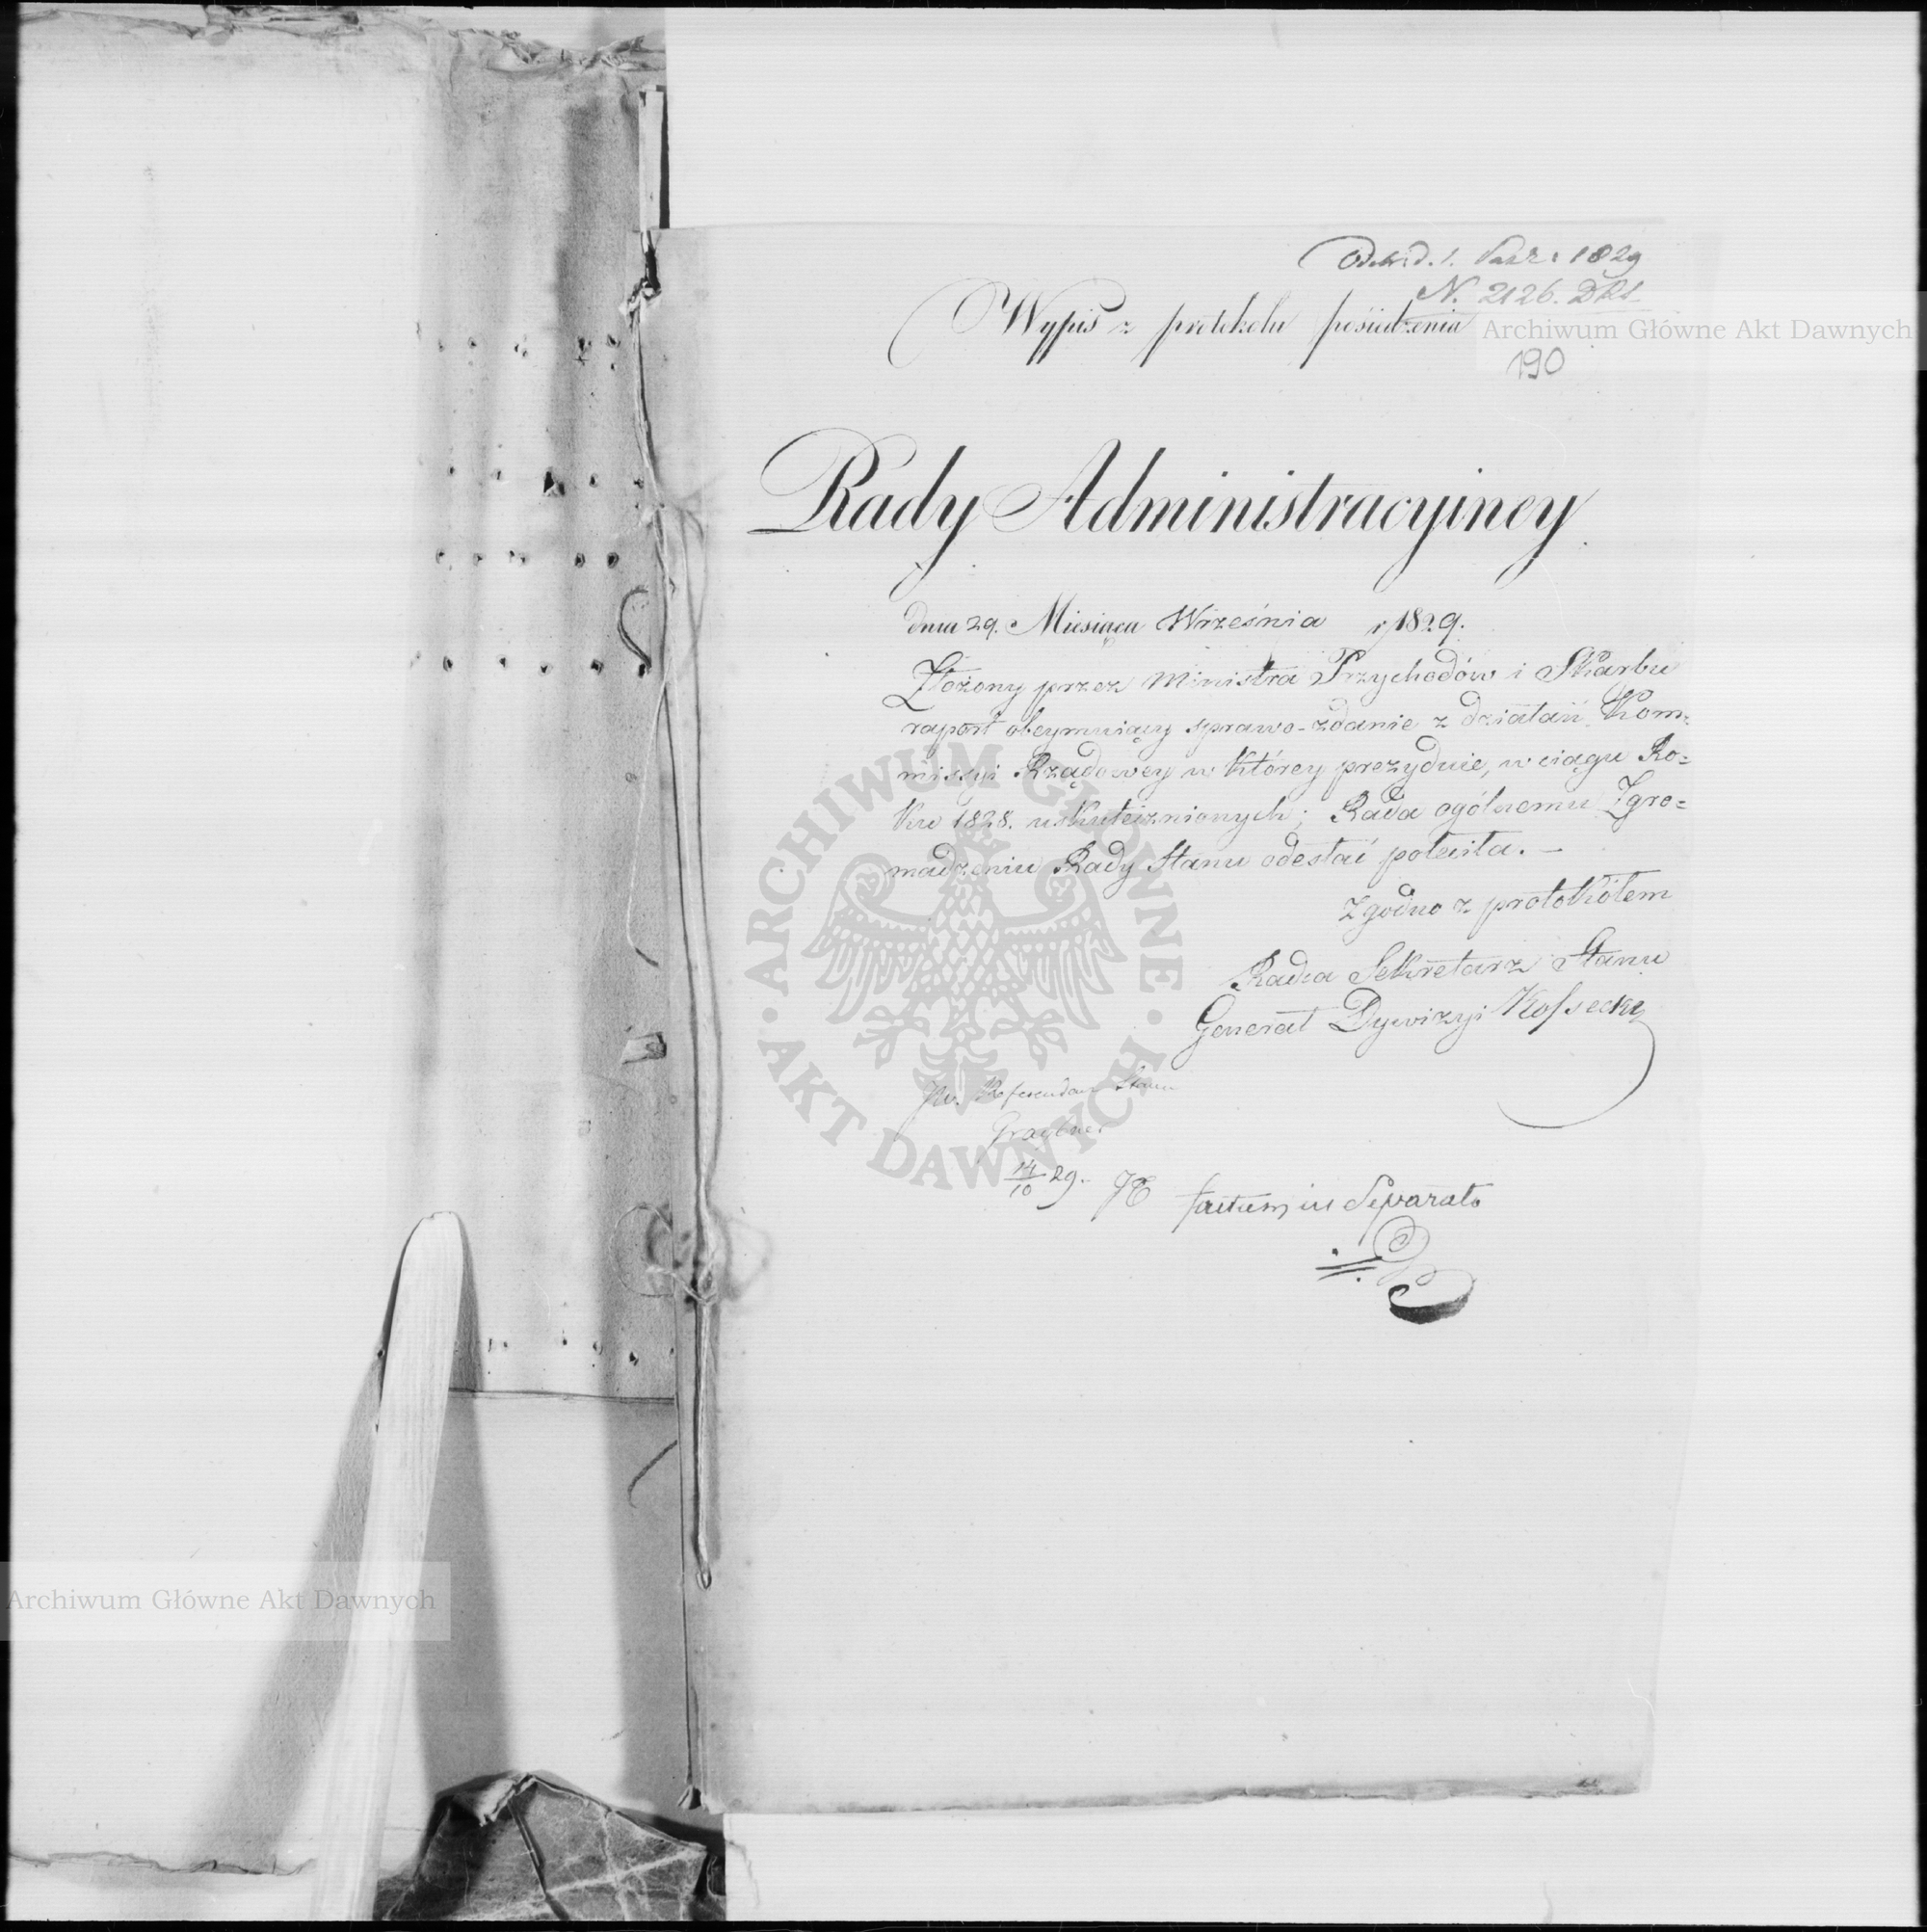 Odebr. d. 1. Paźr: 1829
N. 2126. DRS
Wypis z protokołu posiedzenia
Archiwum Główne Akt Dawnych
190
Rady Administracyiney
dnia 29. Miesiąca Września r 1829.
Złożony przez Ministra Przychodów i Skarbu
raport obeymuiący sprawo-zdanie z działań Kom=
missyi Rządowey w którey prezyduie, w ciągu Ro=
ku 1828. uskutecznionych; Rada ogólnemu Zgro=
madzeniu Rady Stanu odesłać poleciła. —
Zgodno z protokółem
Radca Sekretarz Stanu
Generał Dywizyi Kossecki
JW. Referendarz Stanu
Graybner
14/10 29.
factum in Separato
ARCHIWUM GŁÓWNE
AKT DAWNYCH
Archiwum Główne Akt Dawnych